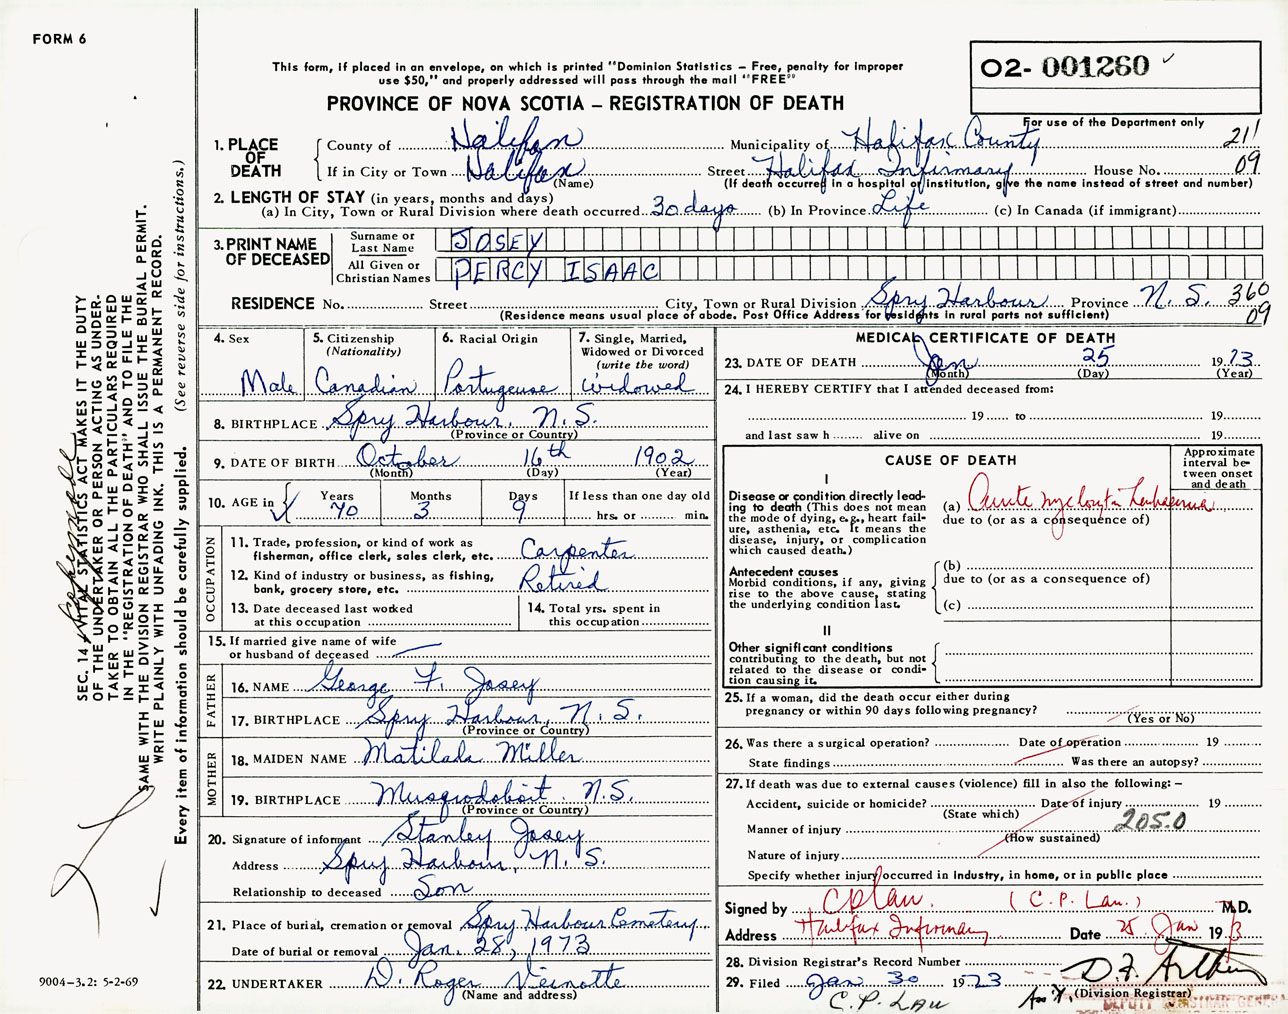 FORM 6
This form, if placed in an envelope, on which is printed "Dominion Statistics – Free, penalty for improper
use $50," and properly addressed will pass through the mail "FREE"
O2- 001260
For use of the Department only
PROVINCE OF NOVA SCOTIA – REGISTRATION OF DEATH
211
09
1. PLACE OF DEATH
County of Halifax Municipality of Halifax County
If in City or Town Halifax Street Halifax Infirmary House No.
(Name) (If death occurred in a hospital or institution, give the name instead of street and number)
2. LENGTH OF STAY (in years, months and days)
(a) In City, Town or Rural Division where death occurred 30 days (b) In Province Life (c) In Canada (if immigrant)
3. PRINT NAME OF DECEASED
Surname or Last Name JOSEY
All Given or Christian Names PERCY ISAAC
RESIDENCE No. Street City, Town or Rural Division Spry Harbour Province N. S. 360
09
(Residence means usual place of abode. Post Office Address for residents in rural parts not sufficient)
4. Sex Male
5. Citizenship (Nationality) Canadian
6. Racial Origin Portugeuse
7. Single, Married, Widowed or Divorced (write the word) widowed
8. BIRTHPLACE Spry Harbour, N. S.
(Province or Country)
9. DATE OF BIRTH October 16th 1902
(Month) (Day) (Year)
10. AGE in Years 70 Months 3 Days 9 If less than one day old hrs. or min.
OCCUPATION
11. Trade, profession, or kind of work as fisherman, office clerk, sales clerk, etc. Carpenter
12. Kind of industry or business, as fishing, bank, grocery store, etc. Retired
13. Date deceased last worked at this occupation
14. Total yrs. spent in this occupation
15. If married give name of wife or husband of deceased
FATHER
16. NAME George F. Josey
17. BIRTHPLACE Spry Harbour, N. S.
(Province or Country)
MOTHER
18. MAIDEN NAME Matilada Miller
19. BIRTHPLACE Musquodoboit N.S.
(Province or Country)
20. Signature of informent Stanley Josey
Address Spry Harbour, N. S.
Relationship to deceased Son
21. Place of burial, cremation or removal Spry Harbour Cemetary
Date of burial or removal Jan. 28, 1973
22. UNDERTAKER D. Roger Veinotte
(Name and address)
MEDICAL CERTIFICATE OF DEATH
23. DATE OF DEATH Jan 25 1973
(Month) (Day) (Year)
24. I HEREBY CERTIFY that I attended deceased from:
19 to 19
and last saw h alive on 19
CAUSE OF DEATH
Approximate interval between onset and death
I
Disease or condition directly leading to death (This does not mean the mode of dying, e.g., heart failure, asthenia, etc. it means the disease, injury, or complication which caused death.)
(a) Acute
due to (or as a consequence of)
Antecedent causes
Morbid conditions, if any, giving rise to the above cause, stating the underlying condition last.
(b)
due to (or as a consequence of)
(c)
II
Other significant conditions
contributing to the death, but not related to the disease or condition causing it.
25. If a woman, did the death occur either during
pregnancy or within 90 days following pregnancy?
(Yes or No)
26. Was there a surgical operation? Date of operation 19
State findings Was there an autopsy?
27. If death was due to external causes (violence) fill in also the following: –
Accident, suicide or homicide? Date of injury 19
(State which)
Manner of injury 205.0
(How sustained)
Nature of injury
Specify whether injury occurred in industry, in home, or in public place
Signed by CPLau. (C. P. Lau.) M.D.
Address Halifax Infirmary Date 25 Jan 1973
28. Division Registrar's Record Number
29. Filed Jan 30 1973
(Division Registrar)
C.P. LAU
SEC. 14 – VITAL STATISTICS ACT MAKES IT THE DUTY
OF THE UNDERTAKER OR PERSON ACTING AS UNDER-
TAKER TO OBTAIN ALL THE PARTICULARS REQUIRED
IN THE "REGISTRATION OF DEATH" AND TO FILE THE
SAME WITH THE DIVISION REGISTRAR WHO SHALL ISSUE THE BURIAL PERMIT.
WRITE PLAINLY WITH UNFADING INK. THIS IS A PERMANENT RECORD.
Every item of information should be carefully supplied. (See reverse side for instructions.)
9004–3.2: 5-2-69